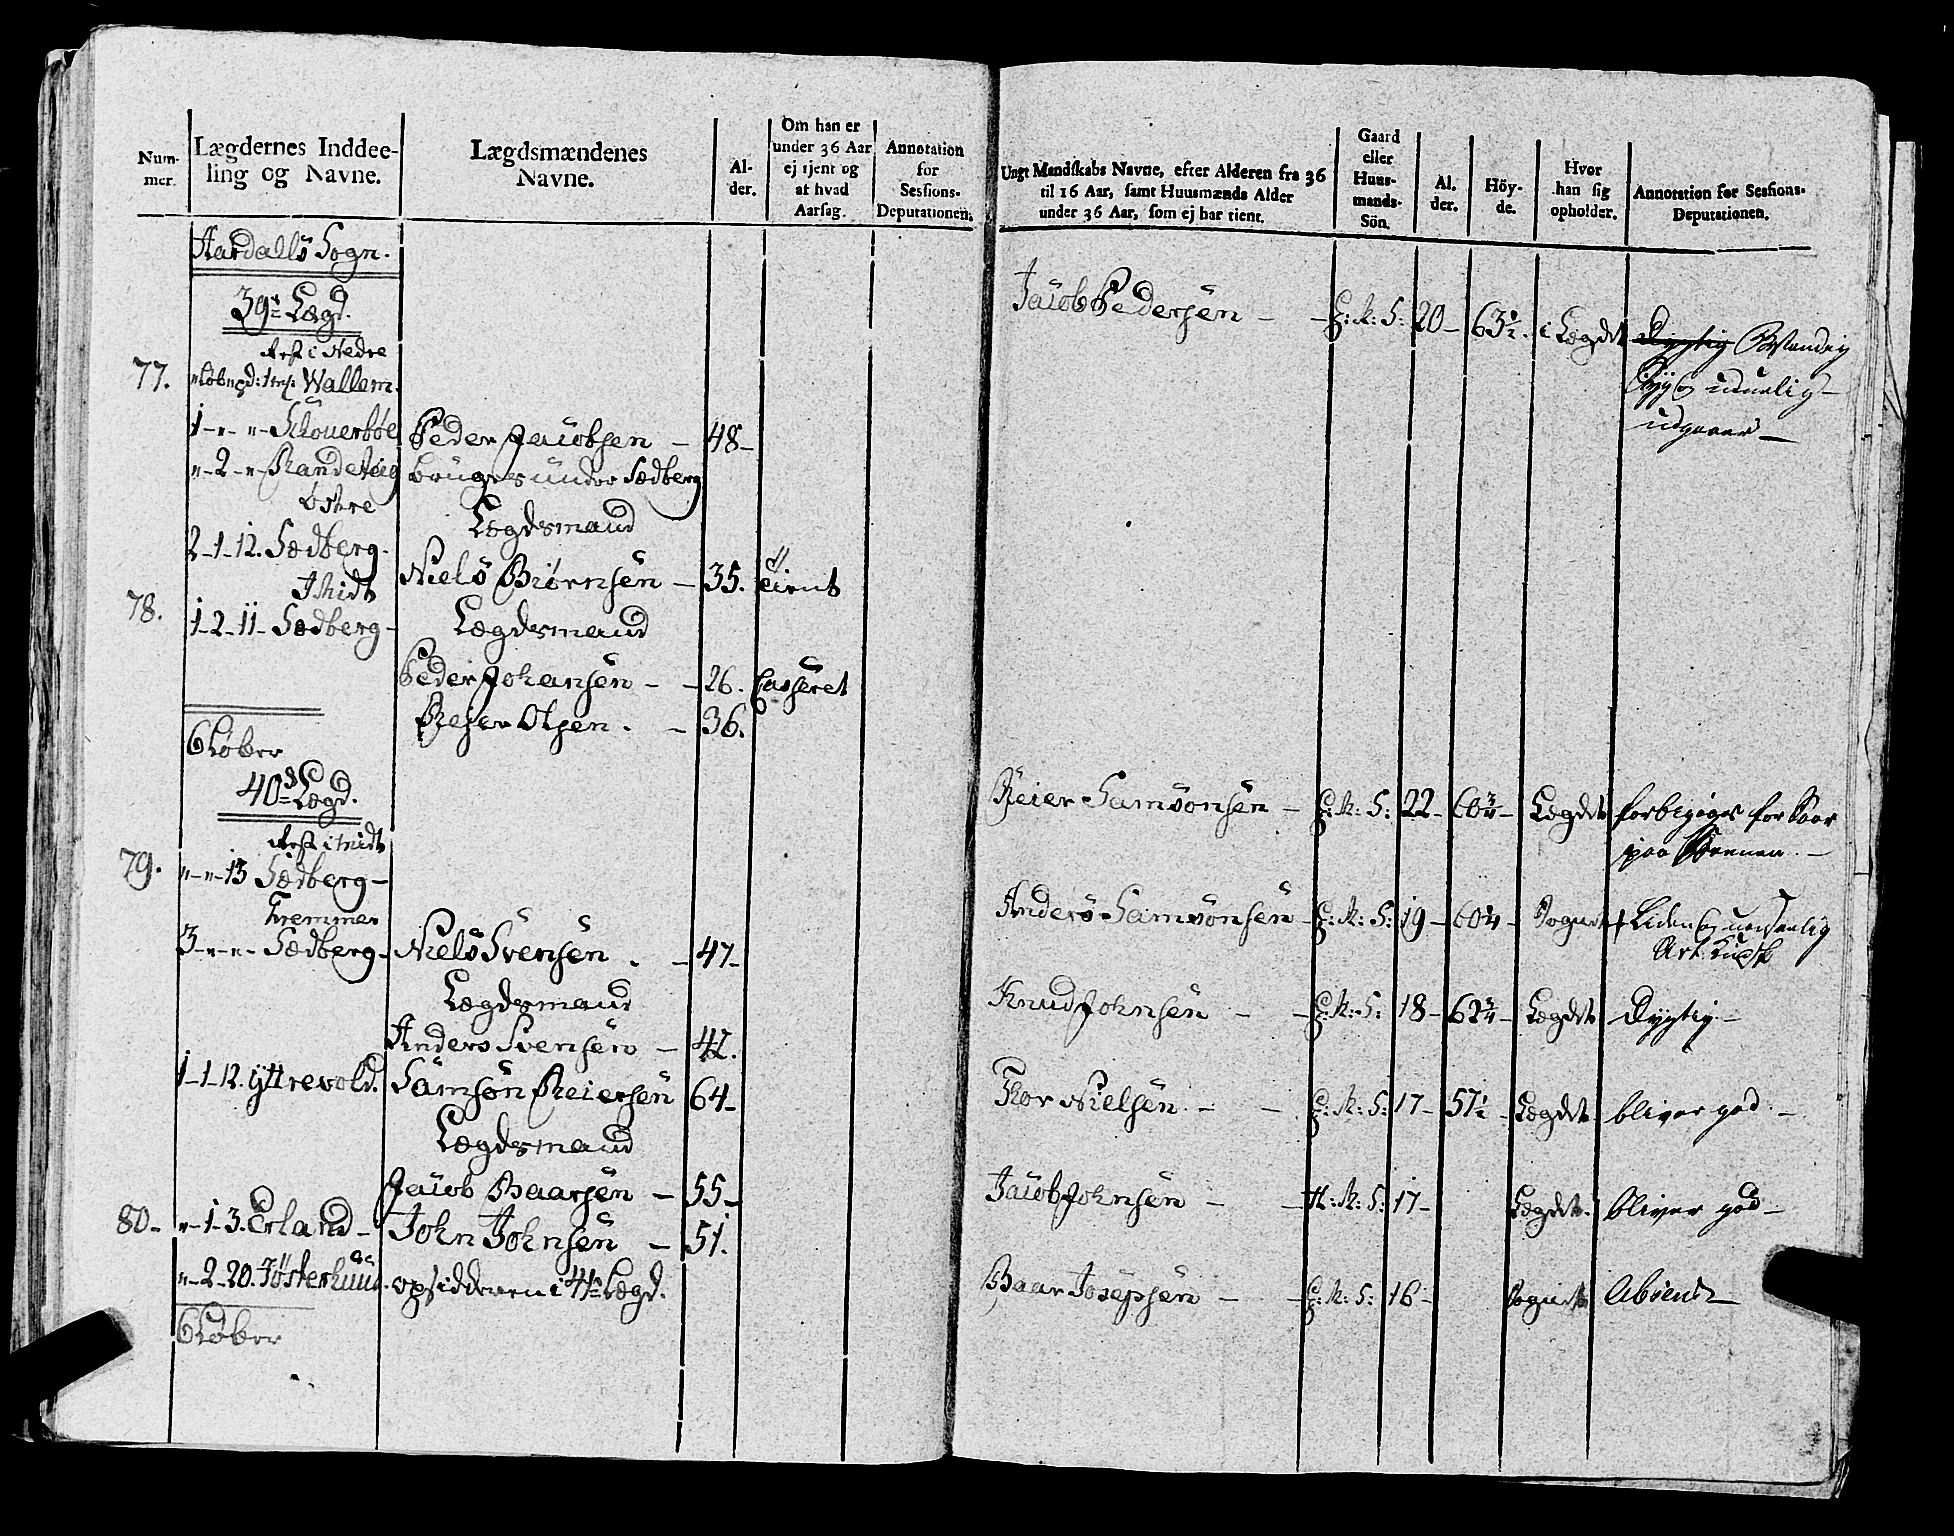 Num-
mer.
Lægdernes Inddee-
ling og Navne.
Lægdsmændenes
Navne.
Al-
der.
Om han er
under 36 Aar
ej tjent og
af hvad
Aarsag.
Annotation
for
Sessions-
Deputationen.
Aardalls Sogn.
39te Lægd.
Rest i Nedre
77. Wallem.
1-"-"- Schouerbøe Peder Jacobsen - 48-
"-2-"- Brugs under Sædberg
Østre Lægdsmand
2-1-12. Sædberg. Niels Biørnsen - 35. tient
Midt
78. 1-2-11- Sædberg- Lægdsmand
Peder Johansen - - 26. Casseret
Reier Olsen. - 36.
6 Løber
40de Lægd.
Rest i Midt
79. "-"-13 Sædberg-
Fremmer
3-"-"- Sædberg- Niels Svensen . - 47-
Lægdsmand
Anders Svensen - 42.
1-1-12. Yttrevold. Samson Reiersen 64-
Lægdsmand
Jacob Baarsen - 55-
80- "-1-3. Erland- John Johnsen - 51.
"-2-20. opsidderen i 41te Lægd.
6 Løber
Ungt Mandskabs Navne, efter Alderen fra 36
til 16 Aar, samt Huusmænds Alder
under 36 Aar, som ej har tient.
Gaard
eller
Huus-
mands-
Sön.
Al-
der.
Höy-
de.
Hvor
han sig
opholder.
Annotation for Sessions-
Deputationen.
Jacob Pedersen - - G: M: S: 20- 63½. i Lægdet Dygtig Bestandig
Syg og uduelig-
udgaaer-
Reier Samsonsen - G: M: S: 22- 60¾- Lægdet forbigiges for Saar
paa
Anders Samsonsen - G: M: S: 19- 60¼- Sognet Liden og
Knud Johnsen - - G: M: S: 18- 62¾- Lægdet Dygtig-
Thor Nielsen. - - G: M: S: 17- 57½- Lægdet bliver god. -
Jacob Johnsen - - H: M: S: 17- Lægdet. bliver god-
Baar Josepsen - - G: M: S: 16- Sognet Absendt-